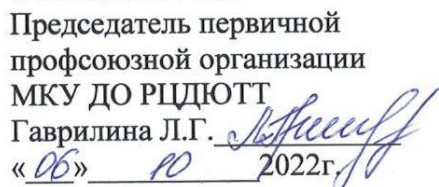 Председатель первичной
профсоюзной организации
МКУ ДО РЦДЮТТ
Гаврилина Л.Г.
«06» 10 2022г.